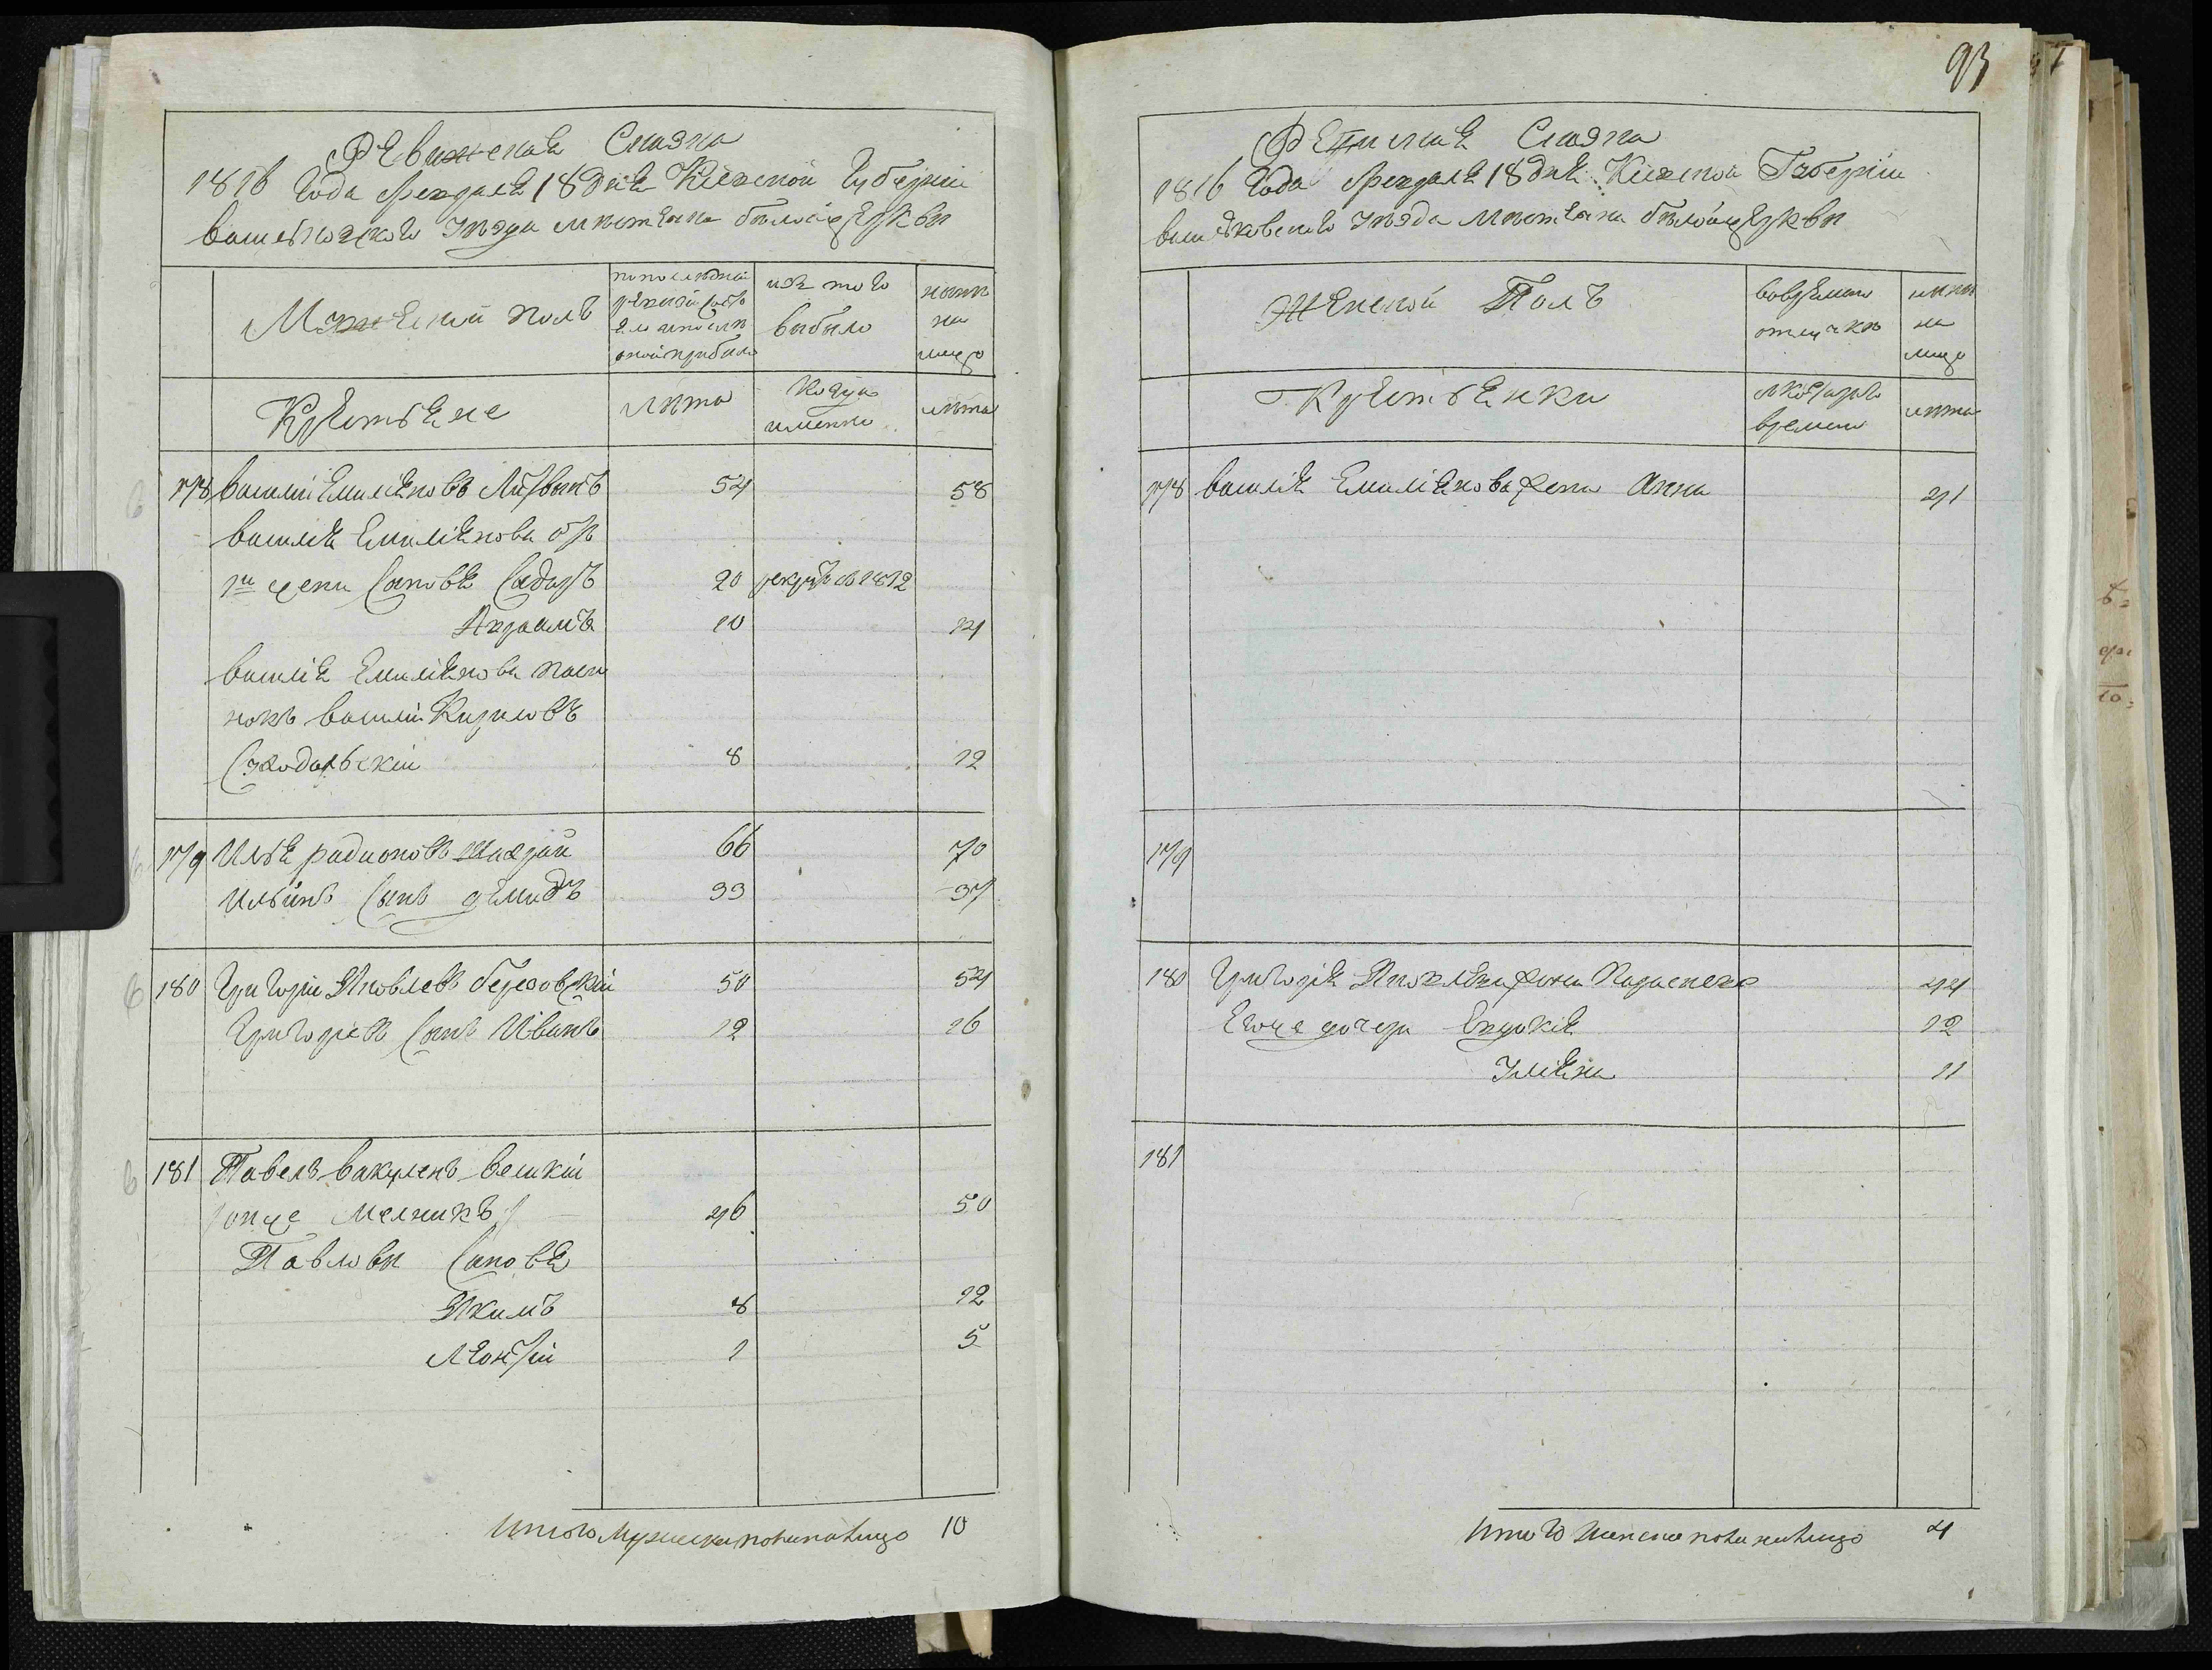 93
Ревижская Сказка
1816 Года Февраля 18 дня Киевской Губернии
Васильковского Уезда Местечка белойцеркви
Мужеский полъ
по последней ревизии состояло и после оной прибыло
изъ того выбыло
ныне на лицо
Крестьяне
лета
Когда именно
лета
178 василий Емилияновъ Литвинъ 54 58
василия Емилиянова отъ
1й жены Сыновья Сидоръ 20 рекрутъ въ 1812
Авраамъ 10 14
василия Емилиянова пасы
нокъ василий Кириловъ
8 12
179 Илья радионовъ 66 70
Ильинъ Сынъ демидъ 33 37
180 Григорий Яковлевъ березовский 50 54
Григориевъ Сынъ Иванъ 12 16
181 Павелъ вакуленъ великий
онже Мелникъ 46 50
Павловы Сыновья
Якимъ 8 12
Леонтий 1 5
Итого Мужеска пола на лицо 10
Ревижская Сказка
1816 Года Февраля 18 дня Киевской Губернии
васильковского Уезда Местечка белойцеркви
Женской Полъ
вовремянной отлучке
ныне на лицо
Крестьянки
скоторого времени
лета
178 василия Емилиянова жена Анна 41
179
180 Григория Яковлева жена Параскева 44
Егоже дочери Евдокия 12
Улияна 11
181
Итого Женска пола на лицо 4